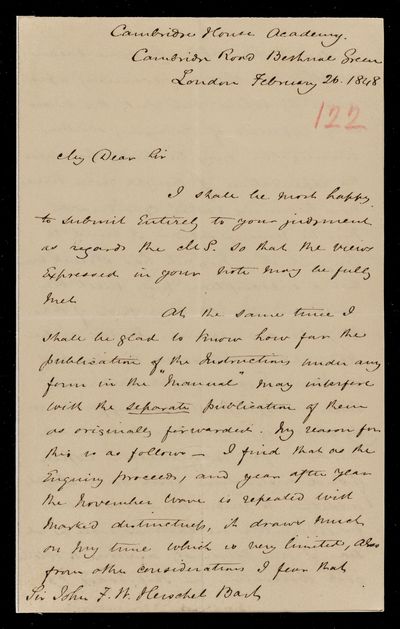 Cambridge House Academy.
Cambridge Road Bethnal Green
London February 26. 1848
122
My Dear Sir
I shall be most happy
to submit entirely to your judgment
as regards the M S. so that the views
expressed in your note may be fully
met.
At the same time I
shall be glad to know how far the
publication of the Instructions under any
form in the "Manual" may interfere
with the separate publication of them
as originally forwarded. My reason for
this is as follows — I find that as the
Enquiry proceeds, and year after year
the November Wave is repeated with
marked distinctness, it draws much
on my time which is very limited, also
from other considerations I fear that
Sir John F. W. Herschel Bart